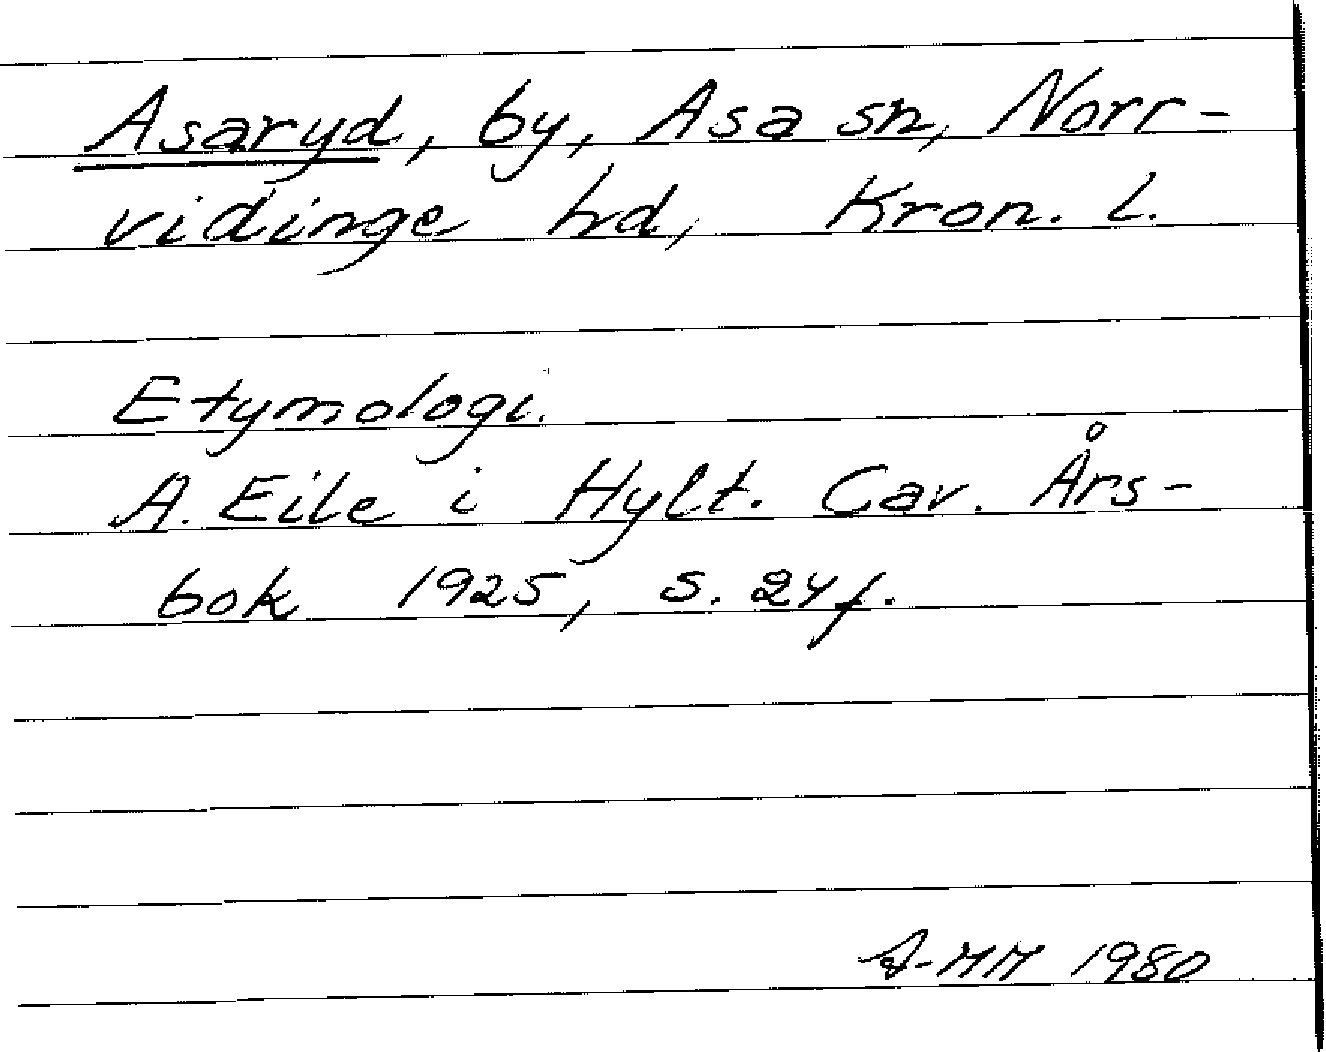 Asaryd, by, Asa sn, Norr-
vidinge hd, Kron. l.
Etymologi.
A. Eile i Hylt. Cav. Års-
bok 1925, s. 24 f.
A-MM 1980